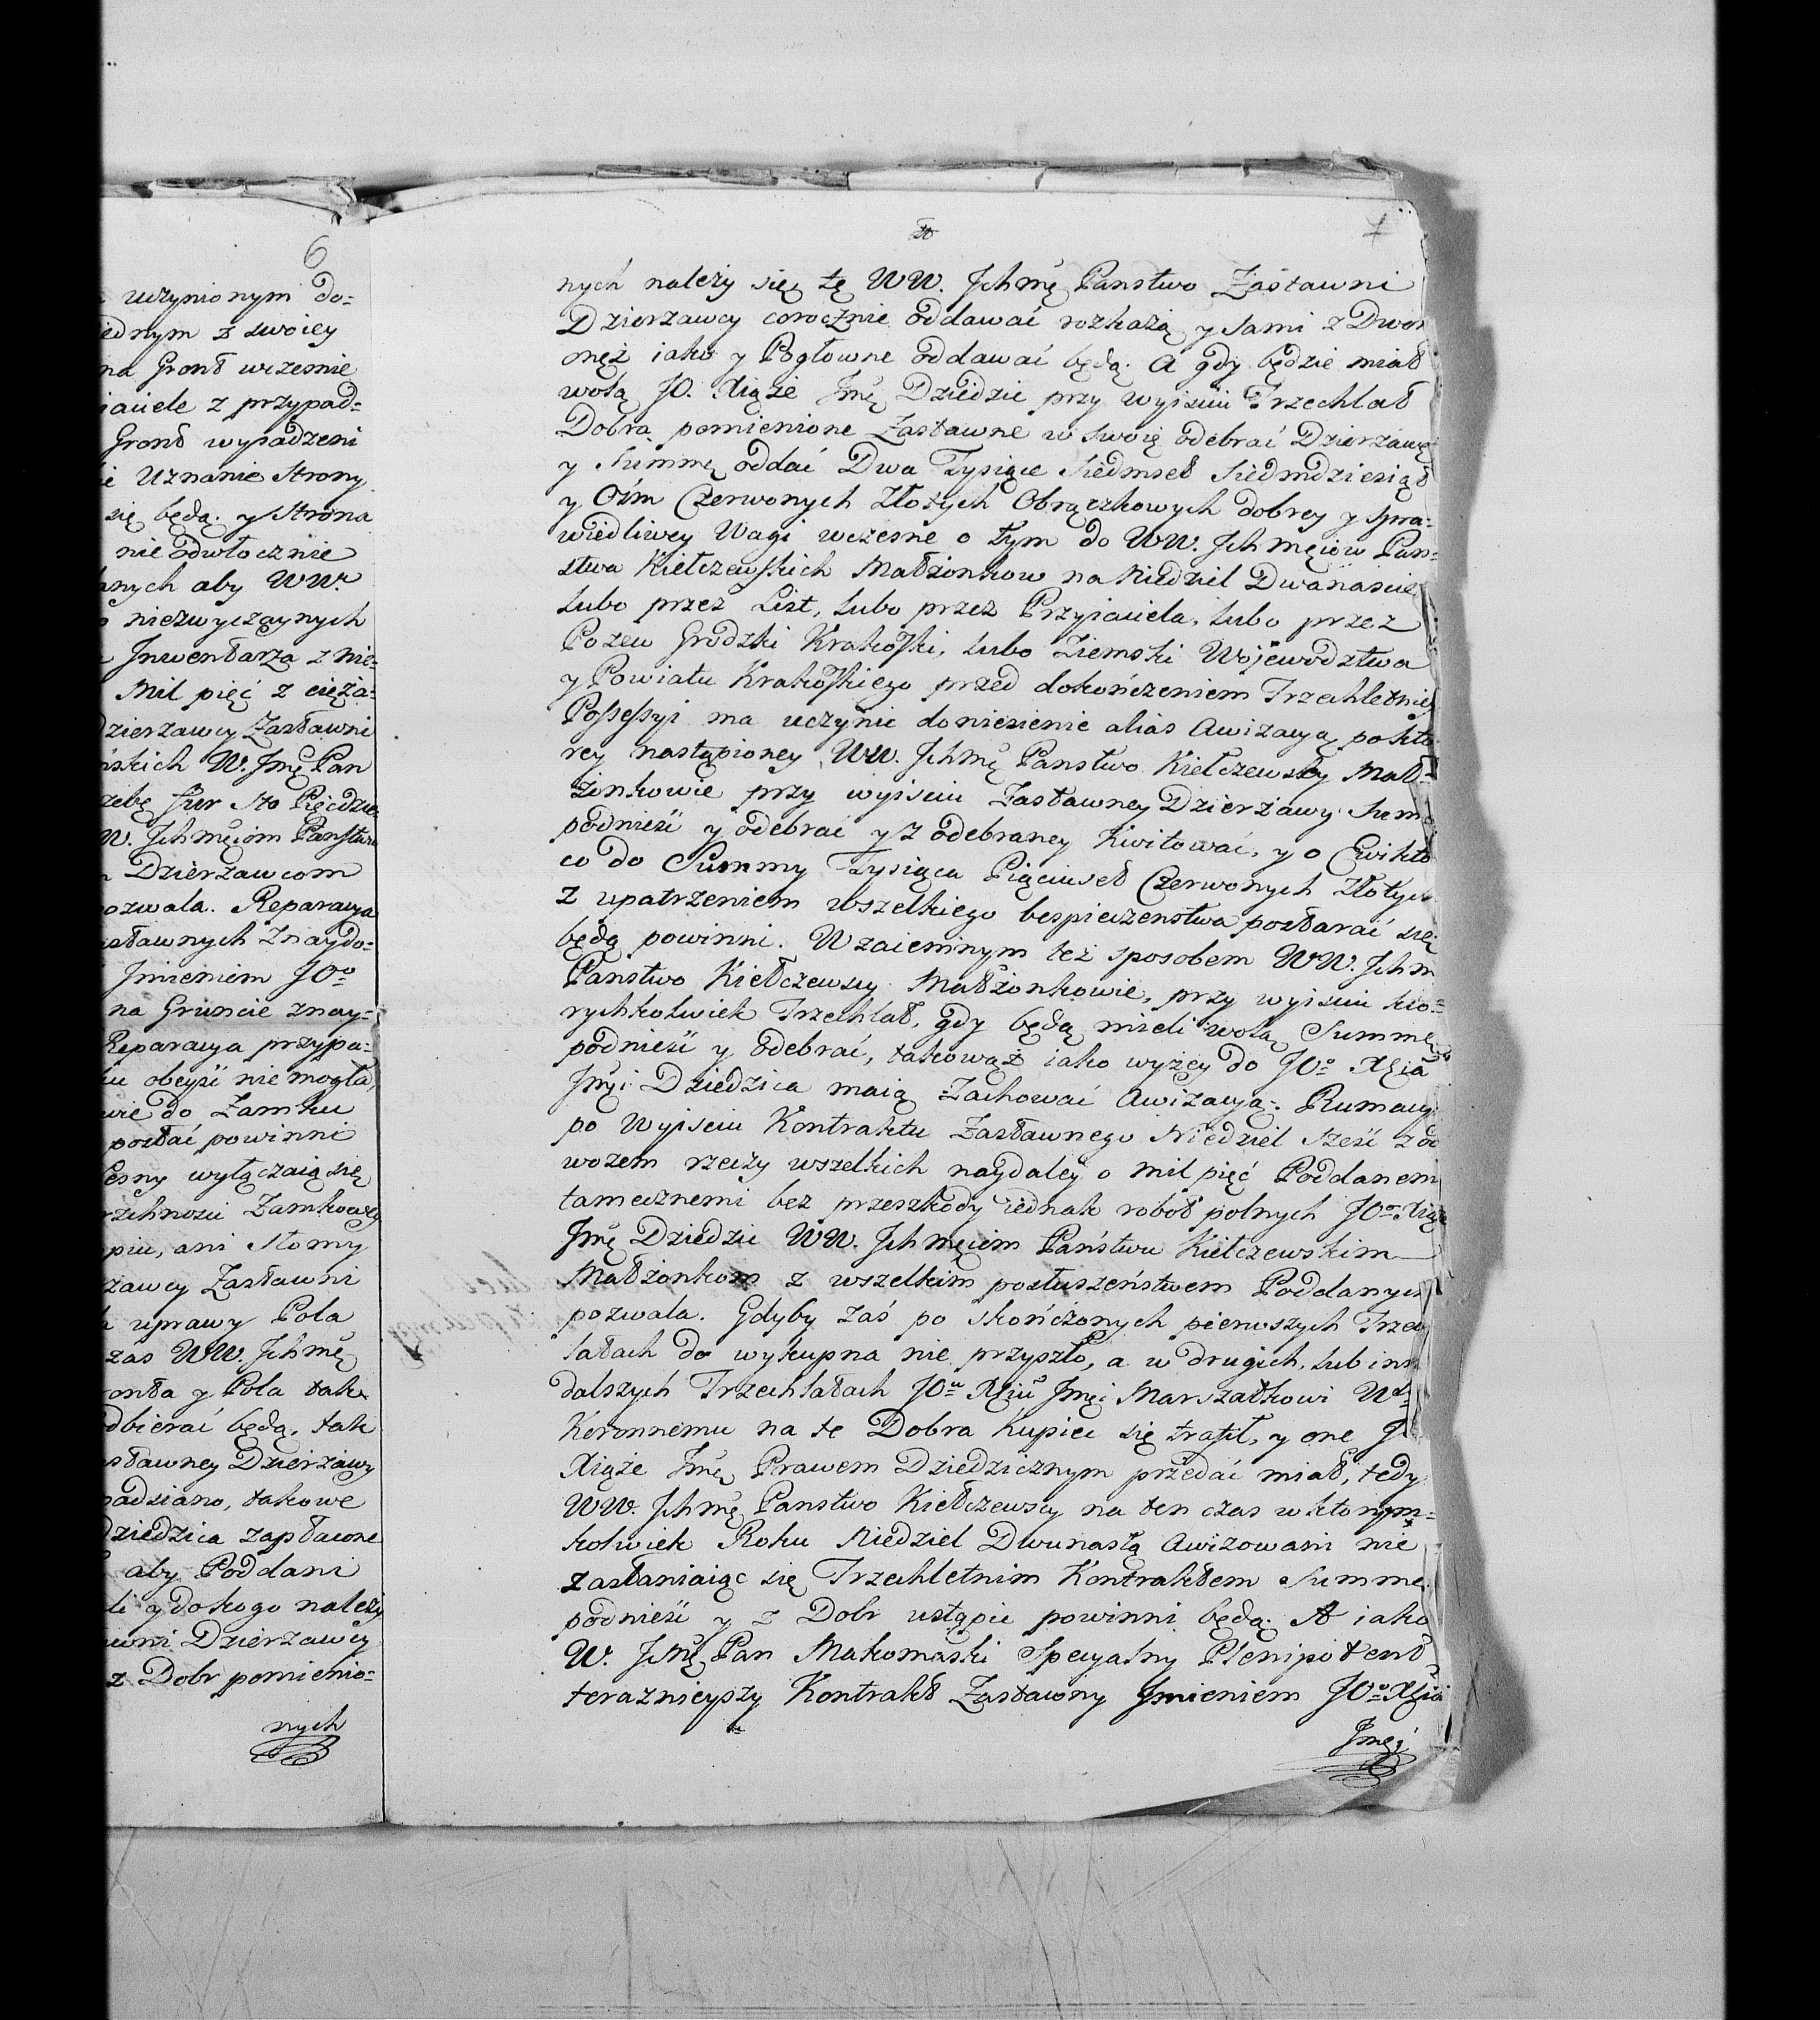 6
uczynionym do=
iednym z swoiey
na Gront wczesnie
iaciele z przypad=
Gront wysadzeni
Uznanie Strony
się będą. y Strona
nie odwłocznie
nych aby WW.
niezwyczaynych
Jnwentarza z nie=
Mil pięć z cięża=
Dzierzawcy Zastawni
ńskich W. Jmę Pan
zebę fur sto Pięcdzie
W. Jchmęciom Panstwu
Dzierzawcom
ozwala. Reparacya
astawnych znaydo=
Jmieniem JOo
na Gruncie znay=
Reparacya przypa=
obeyść nie mogła,
do Zamku
postać powinni
esny wyłączaią się
rzchnosci Zamkowey
piu, ani Słomy
zawcy Zastawni
uprawy Pola
zas WW. Jchmę
onta y Pola tak
dbierać będą, tak
astawney Dzierzawy
adziano, takowe
Dziedzica zapłacone
aby Poddani
li y dokogo należy
wni Dzierzawcy
z Dobr pomienio=
nych
7
nych należy się tę WW. Jchmę Panstwo Zastawni
Dzierzawcy corocznie oddawać rozkażą y sami z Dwor
onęż iako y Pogłowne oddawać będą. A gdy będzie miał
wolą JO. Xiąże Jmę Dziedzic przy wyisciu Trzechlat
Dobra pomienione Zastawne w swoię odebrać Dzierzawę
y Summę oddać Dwa Tysiące Siedmset Siedmdziesiąt
y Ośm Czerwonych Złotych Obrączkowych dobrey y spra=
wiedliwey Wagi wczesne o tym do WW. Jchmęciow Pan=
stwa Kiełczewskich Małżonkow na Niedziel Dwanascie
lubo przez List, lubo przez Przyiaciela, lubo przez
Pozew Grodzki Krakoski, lubo Ziemski Wojewodztwa
y Powiatu Krakoskiego przed dokończeniem Trzechletniey
Possessyi ma uczynic doniesienie alias Awizacyą, po kto
rey nastąpioney WW. Jchmę Panstwo Kiełczewscy Mał=
żonkowie przy wyisciu Zastawney Dzierzawy Summ
podnieść y odebrać y z odebraney kwitować, y o Ewikto
co do Summy Tysiąca Pięciuset Czerwonych Złotych
z upatrzeniem wszelkiego bespieczenstwa postarać się
będą powinni. Wzaiemnym też sposobem WW. Jchm
Panstwo Kiełczewscy Małżonkowie, przy wyisciu kto=
rychkolwiek Trzechlat, gdy będą mieli wolą Summę
podnieść y odebrać, takowąż iako wyżey do JOo Xcia
Jmci Dziedzica maią zachować Awizacyą. Rumacyi
po Wyisciu Kontraktu Zastawnego Niedziel sześć z od
wozem rzeczy wszelkich naydaley o mil pięć Poddanem
tamecznemi bez przeszkody iednak robot polnych JOo Xiąże
Jmę Dziedzic WW. Jchmęciom Państwu Kiełczewskim
Małżonkom z wszelkim posłuszeństwem Poddanych
pozwala. Gdyby zaś po skończonych pierwszych Trzech
latach do wykupna nie przyszło, a w drugich, lub inn
dalszych Trzechlatach JOu Xciu Jmci Marszałkowi Ul
Koronnemu na te Dobra Kupiec się trafił, y one J
Xiąże Jmę Prawem Dziedzicznym przedać miał, tedy
WW. Jchmę Panstwo Kiełczewscy na ten czas w ktorym=
kolwiek Roku Niedziel Dwunastą Awizowani nie
zasłaniaiąc się Trzechletnim Kontraktem Summę
podnieść y z Dobr ustąpić powinni będą. A iako
W. Jmę Pan Makomaski Specyalny Plenipotent
teraznieyszy Kontrakt Zastawny Jmieniem JOo Xcia
Jmci